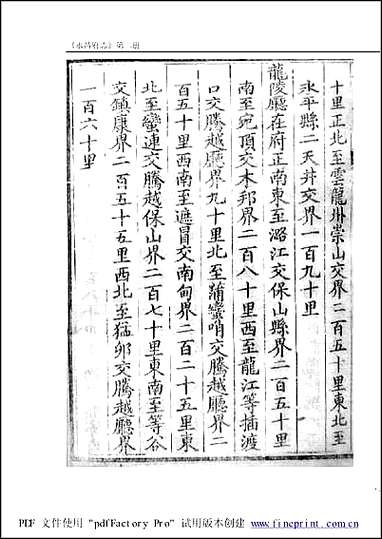 《永昌府志》第二册
十里正北至雲龍州崇山交界二百五十里東北至
永平縣二天井交界一百九十里
龍陵廳在府正南東至潞江交保山縣界二百五十里
南至宛頂交木邦界二百八十里西至龍江等插渡
口交騰越廳界九十里北至蒲蠻哨交騰越廳界二
百五十里西南至遮冒交南甸界二百二十五里東
北至蠻連交騰越保山界二百七十里東南至等谷
交鎮康界二百五十五里西北至猛卯交騰越廳界
一百六十里
PDF 文件使用 "pdfFactory Pro" 试用版本创建 www.fineprint.com.cn